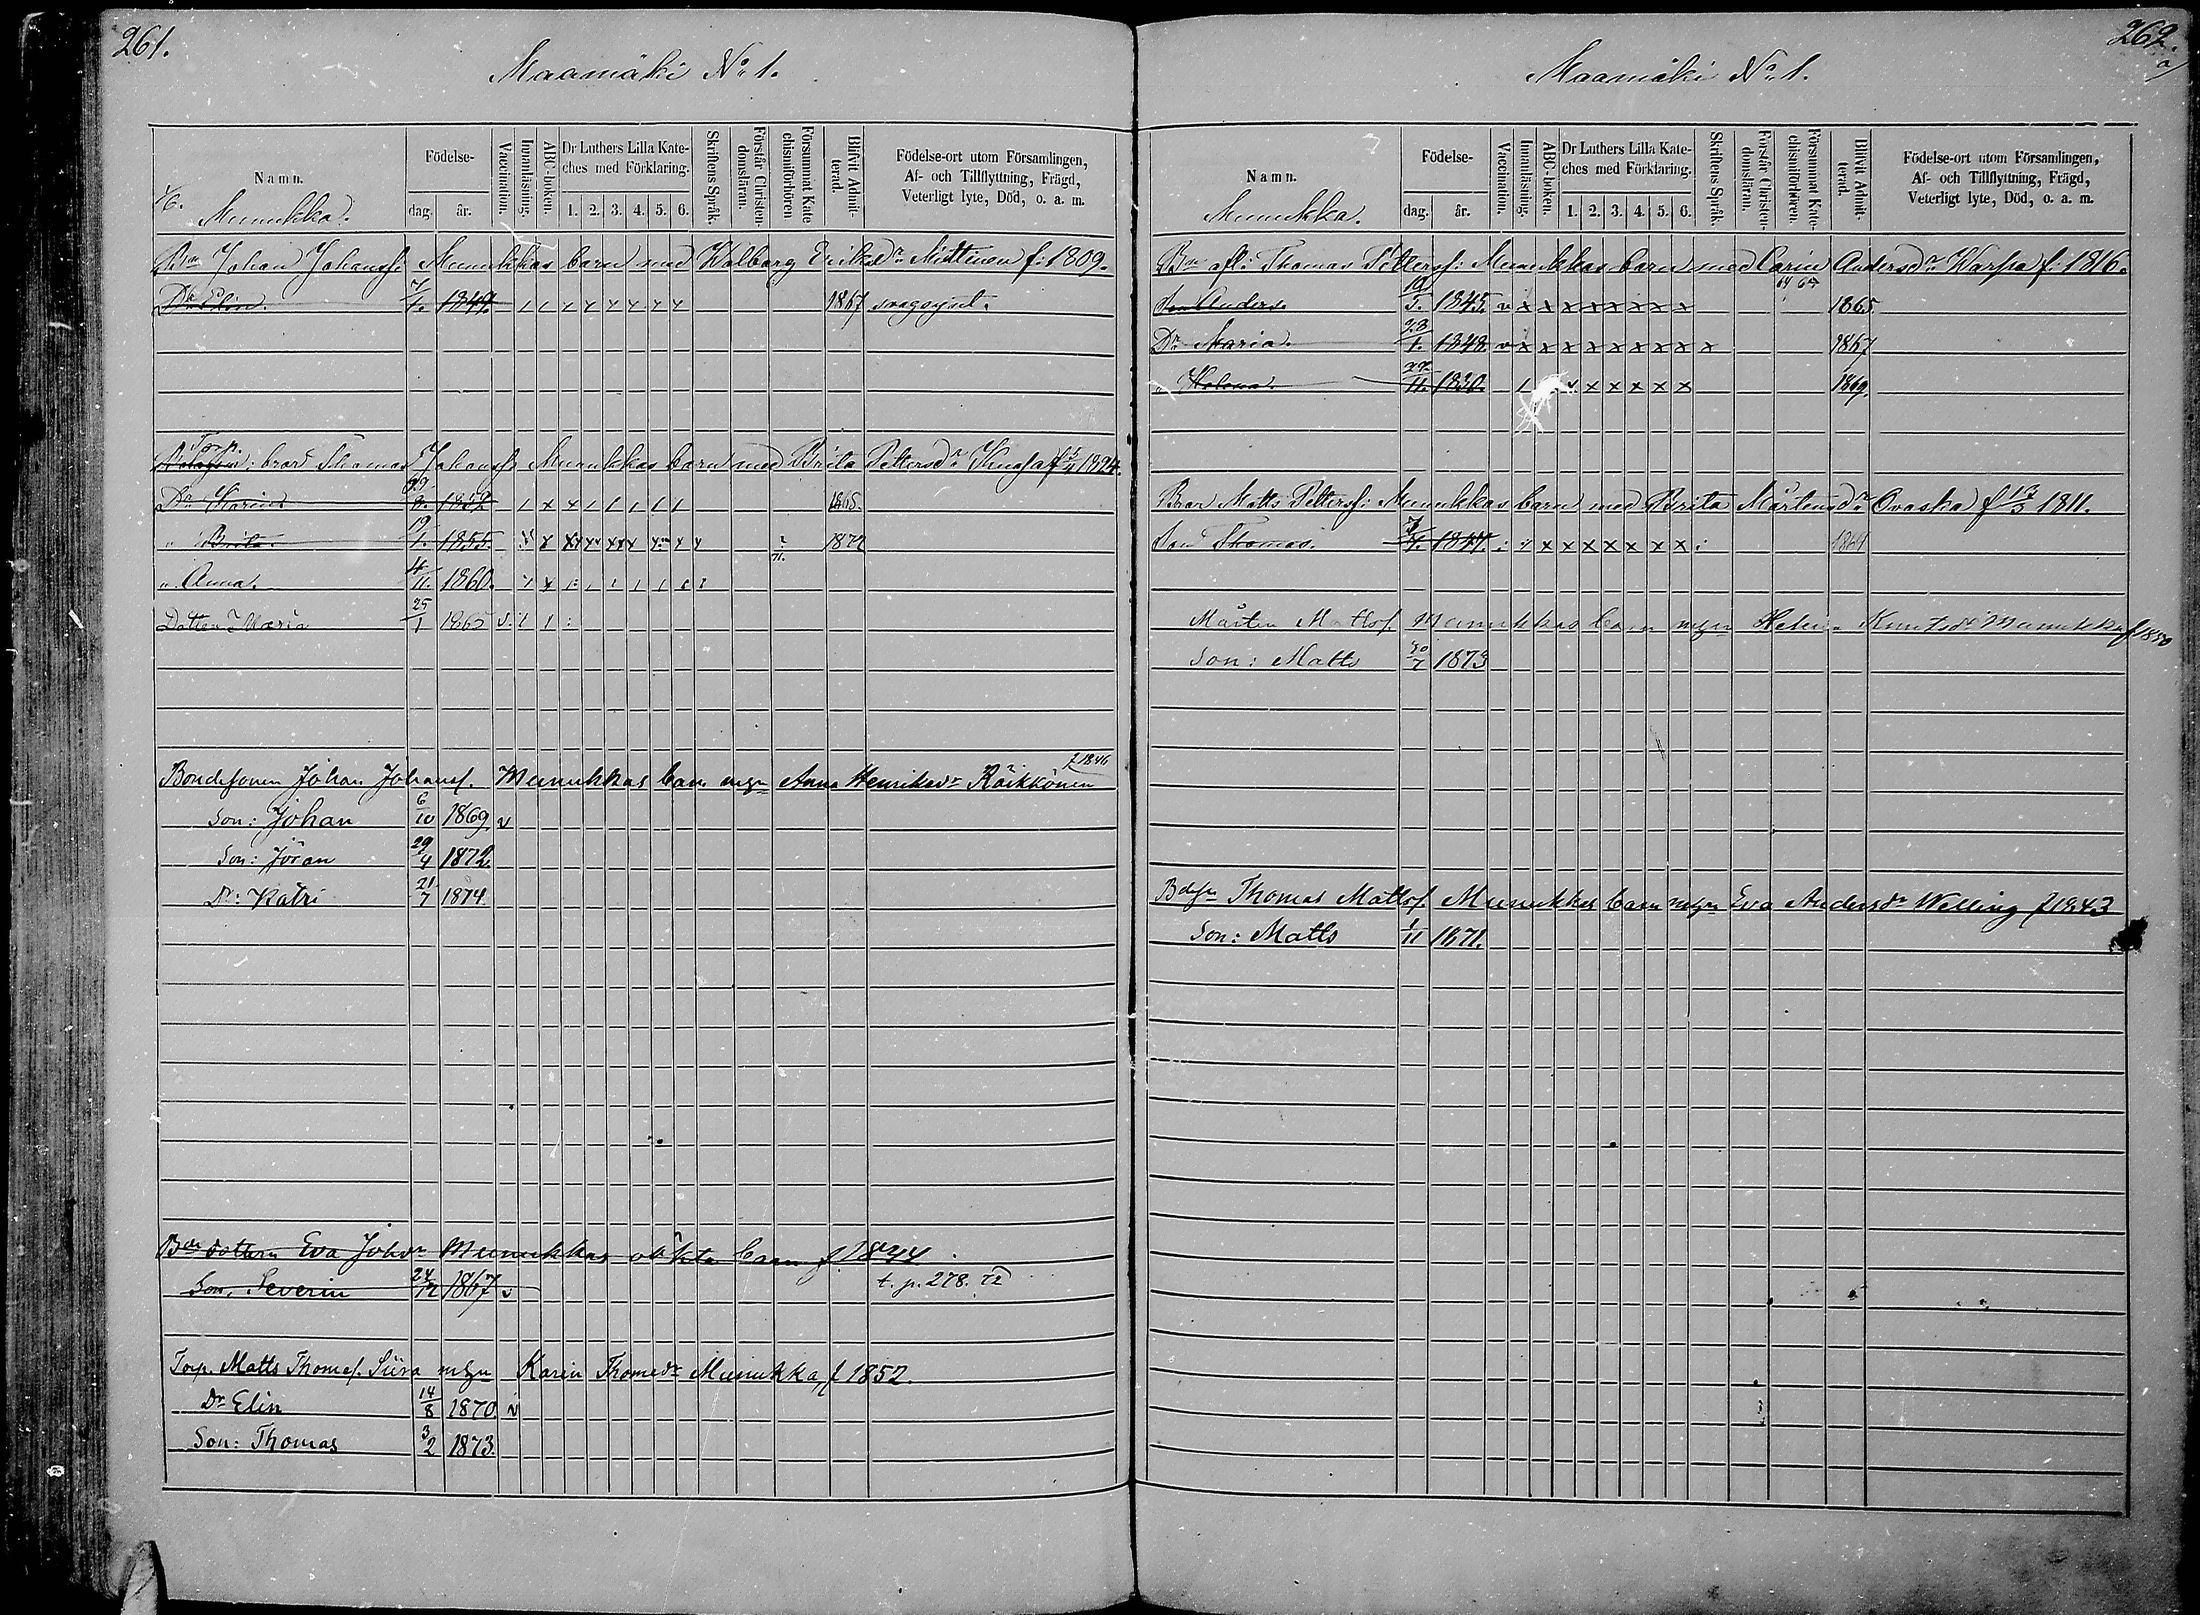 261.
Maamäki No 1.
Namn.
Födelse-
dag. år.
Vaccination.
Innanläsning.
ABC-boken.
Dr Luthers Lilla Kate-
ches med Förklaring.
1. 2. 3. 4. 5. 6.
Skriftens Språk.
Förstår Christen-
domsläran.
Försummat Kate
chismiförhören
Blifvit Admit-
terad.
Födelse-ort utom Församlingen,
Af- och Tillflyttning, Frägd,
Veterligt lyte, Död, o. a. m.
Munukka.
Bon Johan Johanss: Munukkas barn med Walborg Eriksdr Miettinen f: 1809.
Dr Elin. 7/1. 1849. 1867 svagsynt.
Torp. brord Thomas Johanss: Munukkas barn med Brita Pettersdr 1824.
Dr Karin 1852 1865.
" Brita. 19/1. 1855. 71. 1872
" Anna. 4/11. 1860.
Dotter Maria 25/1 1865
f 1846
Bondesonen Johan Johansf. Munukkas barn mhn Anna Henriksdr Räikkönen
Son: Johan 6/10 1869. v
Son: Jöran 29/4 1872.
Dr: Katri 21/7 1874.
Bde dottern Eva Johdr Munukkas oäkta barn f 1844
Son. Severin 24/12 1867 v t. p. 278. 72
Torp. Matts Thomef. Siira mhn Karin Thomedr Munukka, f 1852.
Dr Elin 14/8 1870. v
Son: Thomas 3/2 1873.
262.
a
Maamäki No 1.
Namn.
Födelse-
dag. år.
Vaccination.
Innanläsning.
ABC-boken.
Dr Luthers Lilla Kate-
ches med Förklaring.
1. 2. 3. 4. 5. 6.
Skriftens Språk.
Förstår Christen-
domsläran.
Försummat Kate-
chismiförhören.
Blifvit Admit-
terad.
Födelse-ort utom Församlingen,
Af- och Tillflyttning, Frägd,
Veterligt lyte, Död, o. a. m.
Munukka.
Bon afl: Thomas Pettersf: Munukkas barn med Carin Andersdr Warpa f: 1816.
Son Anders. 10/5. 1845. v x x x x x x x x 64 67 1865
Dr Maria. 28/1. 1848. v x x x x x x x x x 1867
" Helena. 22/11. 1850. x x x x x x 1869.
Bror Matts Pettersf: Munukkas barn med Brita Mårtensdr Ovaska f 17/5 1811.
Son Thomas. 1847. x x x x x x x 1864
Mårten Mattsf. Munukkas barn mhn Helena Knutsdr Munukka f 1850
Son: Matts 30/7 1873
Bdesn Thomas Mattsf. Munukkas barn mhn Eva Andersdr Welling f 1843
Son: Matts 1/11 1871.